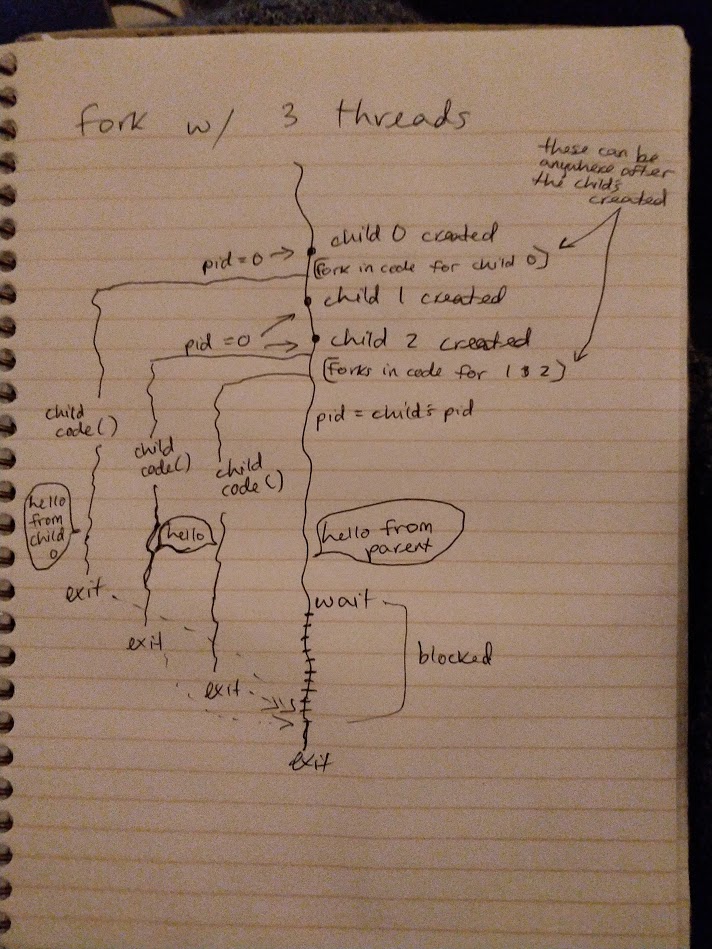 fork w/ 3 threads
these can be
anywhere after
the child's
created
child 0 created
pid = 0 →
[fork in code for child 0]
child 1 created
pid = 0
child 2 created
[forks in code for 1 & 2]
pid = child's pid
child
code()
child
code()
child
code()
hello
from
child
0
hello
hello from
parent
exit
wait
exit
blocked
exit
exit